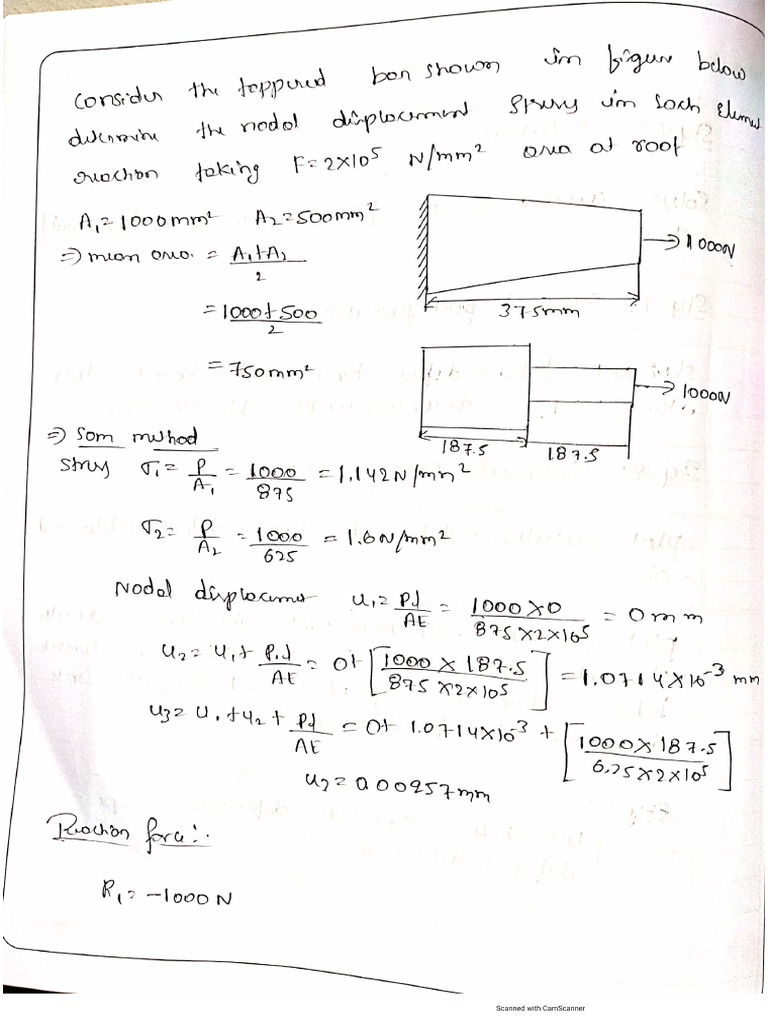 Consider the toppured bar shown in figure below
determine the nodal displacement stress in each element
reaction taking F=2×10⁵ N/mm² area at roof
A₁=1000mm² A₂=500mm²
⇒ mean area = A₁+A₂ / 2
= 1000+500 / 2
= 750mm²
→1000N
375mm
→1000N
187.5 187.5
⇒ Som method
stress σ₁= P/A₁ = 1000/875 = 1.142N/mm²
σ₂= P/A₂ = 1000/625 = 1.6N/mm²
Nodal displacement u₁= P.l/AE = 1000×0 / 875×2×10⁵ = 0mm
u₂= u₁+ P.l/AE = 0+ [1000×187.5 / 875×2×10⁵] = 1.0714×10⁻³ mm
u₃= u₁+u₂+ P.l/AE = 0+ 1.0714×10⁻³ + [1000×187.5 / 6.25×2×10⁵]
u₃=0.00257mm
Reaction force:-
R₁= -1000N
Scanned with CamScanner